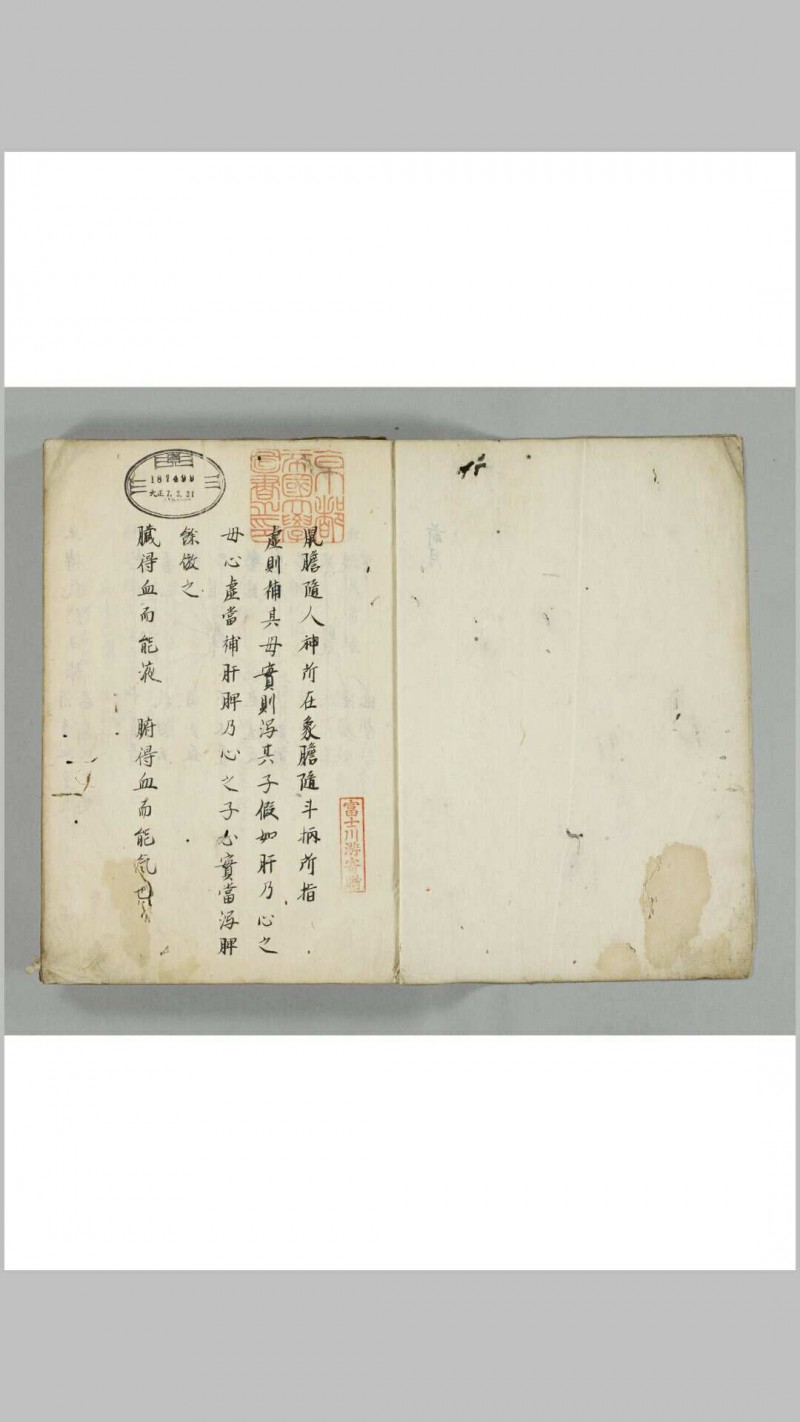 京都
帝國大學
圖書之印
富士川游寄贈
鼠膽隨人神所在象膽隨斗柄所指
虛則補其母實則瀉其子假如肝乃心之
母心虛當補肝脾乃心之子心實當瀉脾
餘倣之
臟得血而能液 腑得血而能氣也
187499
大正7.3.31